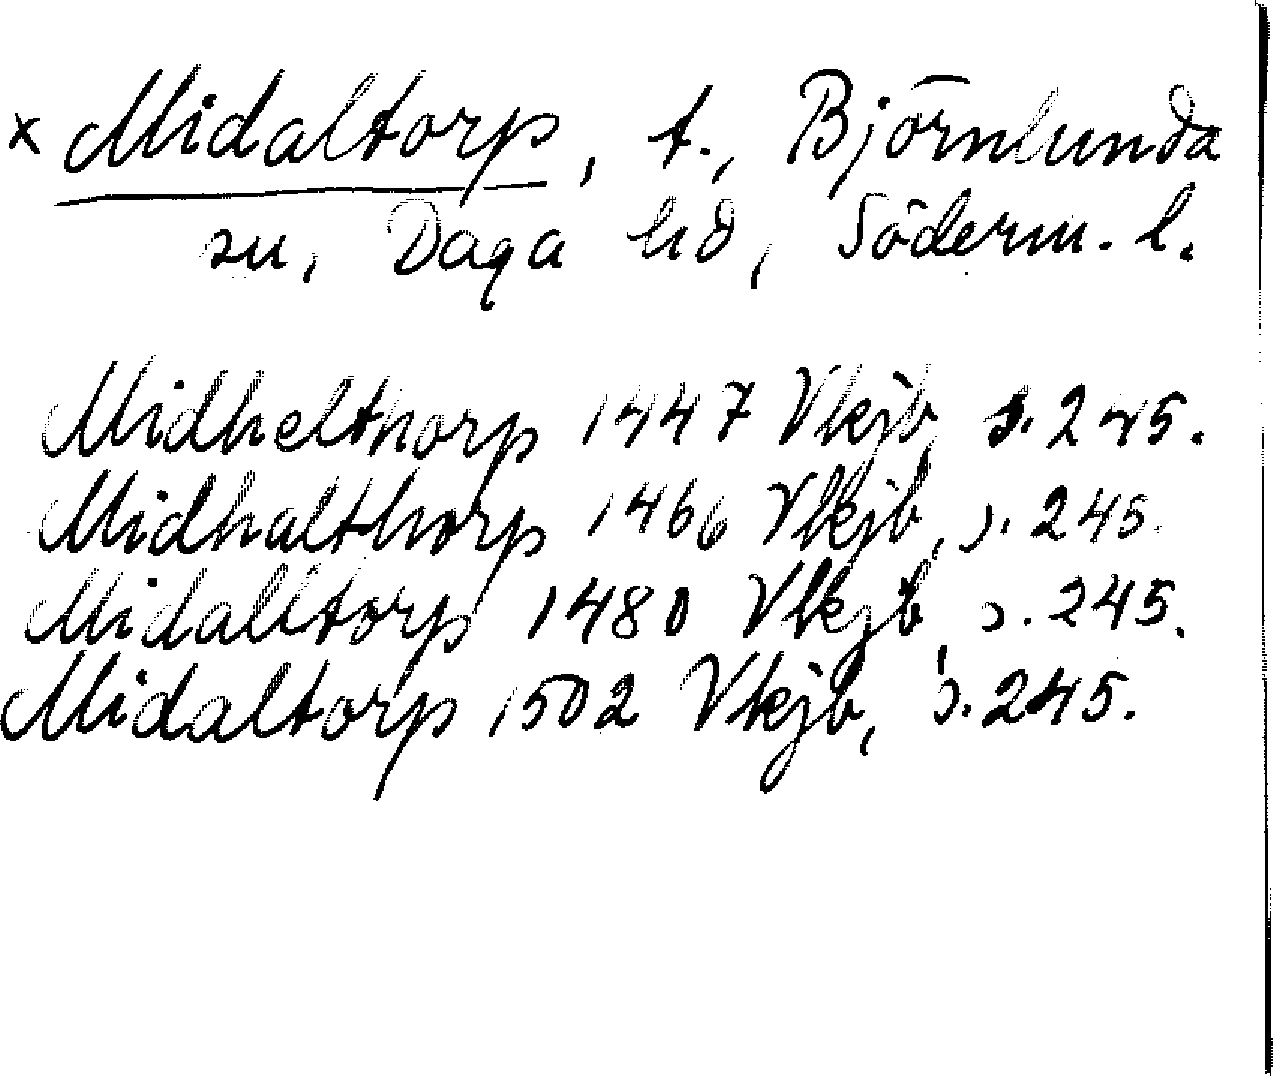 x Midaltorp, t., Björnlunda
sn, Daga hd, Söderm. l.
Midhelthorp 1447 Vkjb, s. 245.
Midhalthorp 1466 Vkjb, s. 245.
Midalltorp 1480 Vkjb, s. 245.
Midaltorp 1502 Vkjb, s. 245.